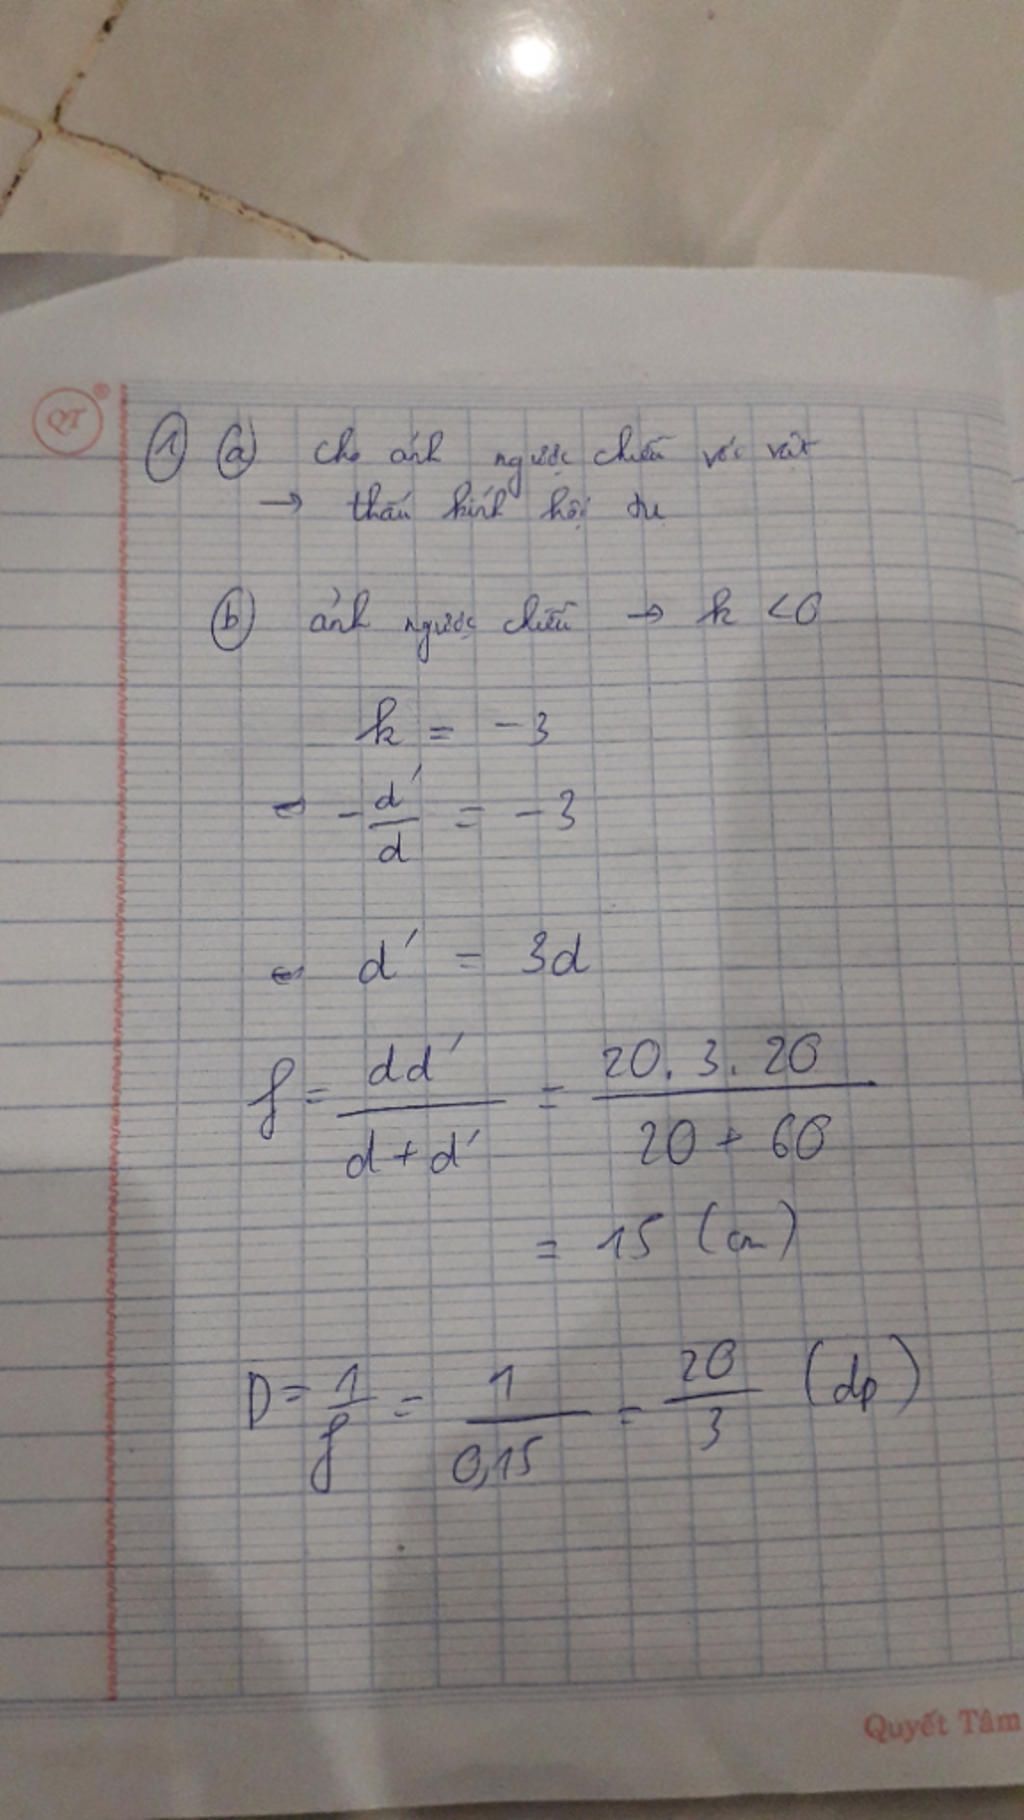 QT ®
① ⓐ cho ảnh ngược chiều với vật
→ thấu kính hội tụ
ⓑ ảnh ngược chiều → k < 0
k = -3
⇔ -d'/d = -3
⇔ d' = 3d
f = dd'/(d + d') = 20.3.20/(20 + 60)
= 15 (cm)
D = 1/f = 1/0,15 = 20/3 (dp)
Quyết Tâm